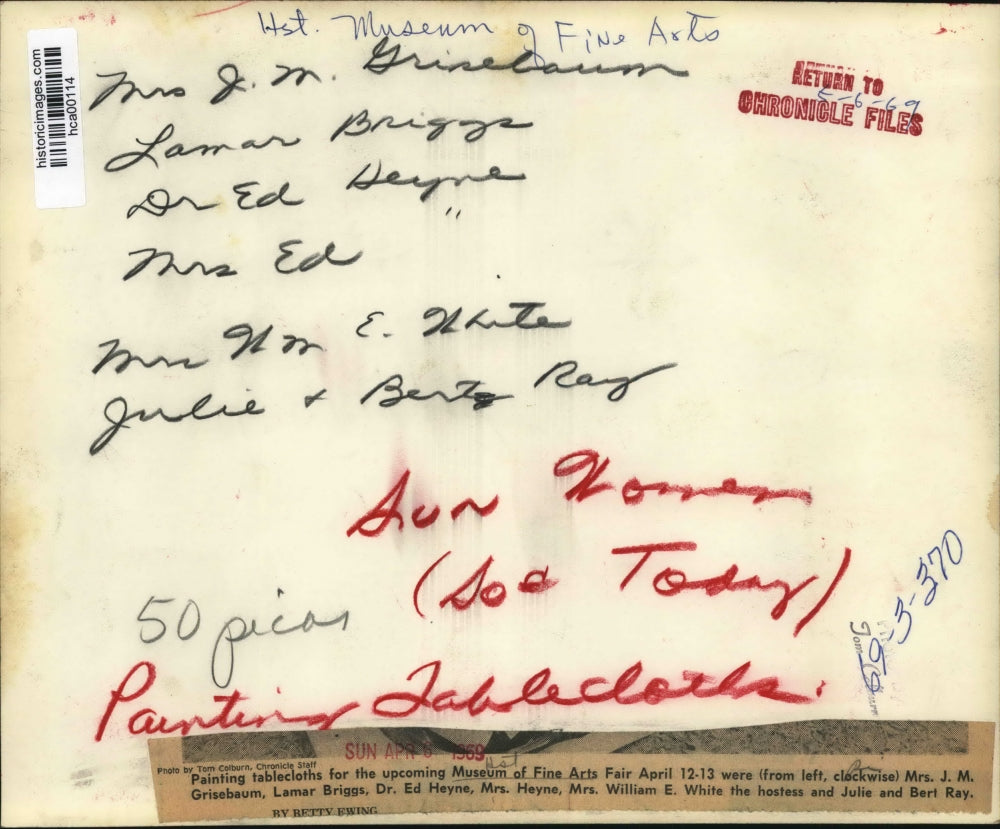 Hst. Museum of Fine Arts
historicimages.com
hca00114
Mrs J. M. Grisebaum
RETURN TO
CHRONICLE FILES
5-6-69
Lamar Briggs
Dr Ed Heyne
Mrs Ed "
Mrs Wm E. White
Julie + Bert Ray
Sun Women
(Soc Today)
50 picas
69-3-370
Tom
Painting Tablecloths.
SUN APR 1969
Hst
Photo by Tom Colburn, Chronicle Staff
Painting tablecloths for the upcoming Museum of Fine Arts Fair April 12-13 were (from left, clockwise) Mrs. J. M.
Grisebaum, Lamar Briggs, Dr. Ed Heyne, Mrs. Heyne, Mrs. William E. White the hostess and Julie and Bert Ray.
BY BETTY EWING